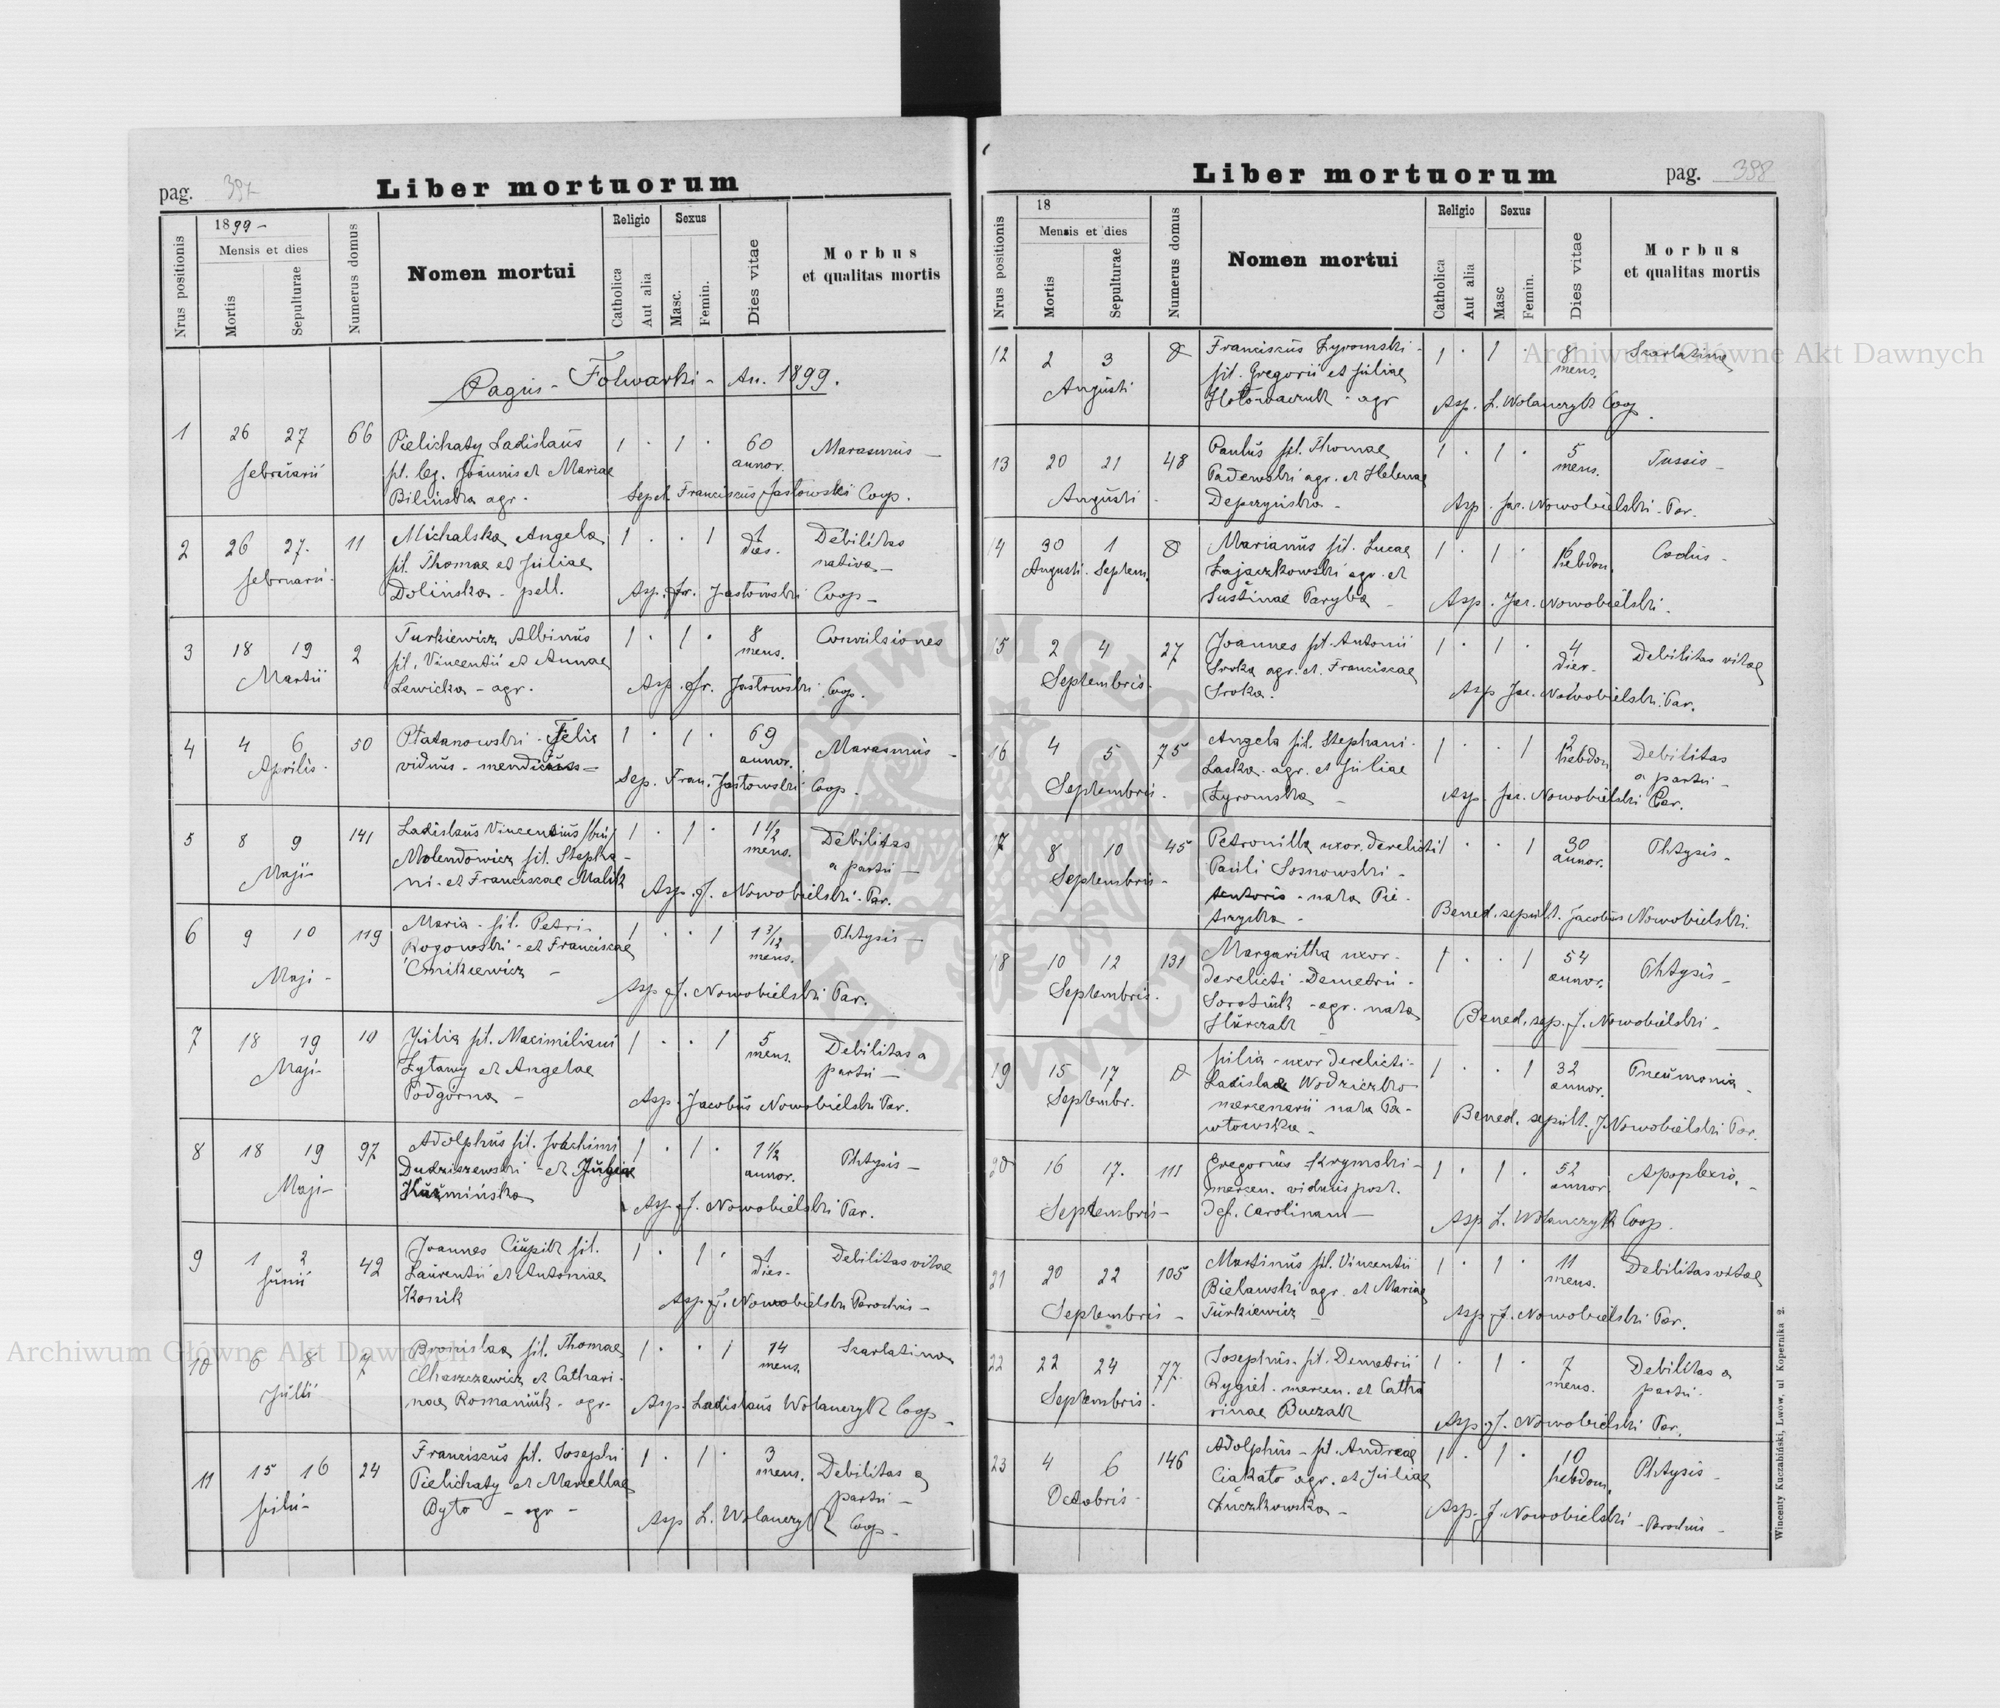 pag. 397
Liber mortuorum
Nrus positionis
1899 -
Mensis et dies
Mortis
Sepulturae
Numerus domus
Nomen mortui
Religio
Catholica
Aut alia
Sexus
Masc.
Femin.
Dies vitae
Morbus
et qualitas mortis
Pagus - Folwarki - An. 1899.
1 26 27 66 Pielichaty Ladislaus 1 . 1 . 60 Marasmus -
februarii fil. leg. Joannis et Mariae annor.
Bilińska agr. Sep. Franciscus Jastowski Coop.
2 26 27. 11 Michalska Angela 1 . . 1 1 Debilitas
februarii fil. Thomae et Juliae dies. nativa -
Dolińska - pell. Asp. Fr. Jastowski Coop -
3 18 19 2 Turkiewicz Albinus 1 . 1 . 8 Convulsiones
Martii fil. Vincentii et Annae mens.
Lewicka - agr. Asp. Fr. Jastowski Coop.
4 4 6 50 Płatanowski - Felix 1 . 1 . 69 Marasmus -
Aprilis - viduus - mendicus = annor.
Sep. Fran. Jastowski Coop.
5 8 9 141 Ladislaus Vincentius /bin/ 1 . 1 . 1 1/2 Debilitas
Maji - Molendowicz fil. Stepha- mens. a partu -
ni - et Franciscae Malik Asp. J. Nowobielski - Par.
6 9 10 119 Maria - fil. Petri - 1 . . 1 1 3/12 Phtysis -
Maji - Rogowski - et Franciscae mens.
Cmikiewicz - Asp. J. Nowobielski Par.
7 18 19 10 Julia fil. Maximiliani 1 . . 1 5 Debilitas a
Maji - Zytawy et Angelae mens. partu -
Podgórna - Asp. Jacobus Nowobielski Par.
8 18 19 97 Adolphus fil. Joachimi 1 . 1 . 1 1/2 Phtysis -
Maji - Dudziszewski - et Juliae annor.
Kuźmińska Asp. J. Nowobielski Par.
9 1 2 42 Joannes Ciupik fil. 1 . 1 . 1 Debilitas vitae
Junii Laurentii et Antoniae dies -
Konik Asp. J. Nowobielski Parochus -
10 6 8 7 Bronislaa fil. Thomae 1 . . 1 14 Szarlatina
Julii Chaszczewicz et Cathari- mens.
nae Romaniuk - agr - Asp. Ladislaus Wolanczyk Coop -
11 15 16 24 Franciscus fil. Josephi 1 . 1 . 3 Debilitas a
Julii - Pielichaty et Marcellae mens. partu -
Byto - agr - Asp L. Wolanczyk Coop -
Liber mortuorum
pag. 398
Nrus positionis
18
Mensis et dies
Mortis
Sepulturae
Numerus domus
Nomen mortui
Religio
Catholica
Aut alia
Sexus
Masc
Femin.
Dies vitae
Morbus
et qualitas mortis
12 2 3 Franciscus Zyromski - 1 . 1 . 8 Szarlatina
Augusti fil. Gregorii et Juliae mens.
Hołowaczuk - agr Asp. L. Wolanczyk Coop.
13 20 21 48 Paulus fil. Thomae 1 . 1 . 5 Tussis -
Augusti - Padewski agr. et Helenae mens.
Depczyńska - Asp. Jac. Nowobielski - Par.
14 30 1 Marianus fil. Lucae 1 . 1 . 6 Casus -
Augusti - Septem. Zajaczkowski agr. et hebdom.
Justinae Paryba - Asp. Jac. Nowobielski.
15 2 4 27 Joannes fil. Antonii 1 . 1 . 4 Debilitas vitae
Septembris - Sroka agr. et Franciscae dier -
Sroka. Asp Jac. Nowobielski. Par.
16 4 5 75 Angela fil. Stephani - 1 . . 1 2 Debilitas
Septembris - Laska - agr. et Juliae hebdom a partu -
Zyromska - Asp. Jac. Nowobielski Par.
17 8 10 45 Petronilla uxor. derelicti 1 . . 1 30 Phtysis -
Septembris - Pauli Sosnowski - annor.
sutoris - nata Pie-
trzycka - Bened. sepult. Jacobus Nowobielski.
18 10 12 131 Margaritha uxor - 1 . . 1 54 Phtysis -
Septembris - derelicti - Demetrii - annor.
Sorotiuk - agr. nata
Hurczak - Bened. sep. J. Nowobielski -
19 15 17 Julia - uxor derelicti - 1 . . 1 32 Pneumonia -
Septembr. Ladislae Wodziczko annor.
mercenarii nata Pa-
włowska - Bened. sepult. J. Nowobielski Par.
20 16 17. 111 Gregorius Krymski - 1 . 1 . 52 Apoplexia -
Septembris - mercen. viduus post. annor.
def. Carolinam - Asp L. Wolanczyk Coop.
21 20 22 105 Martinus fil. Vincentii 1 . 1 . 11 Debilitas vitae
Septembris - Bielawski agr. et Mariae mens.
Turkiewicz - Asp. J. Nowobielski Par.
22 22 24 77 Josephus - fil. Demetrii 1 . 1 . 7 Debilitas a
Septembris. Rygiel - mercen. et Catha mens. partu -
rinae Buczak Asp. J. Nowobielski Par.
23 4 6 146 Adolphus - fil. Andreae 1 . 1 . 10 Phtysis -
Octobris - Ciakato agr. et Juliae hebdom.
Żuczkowska - Asp. J. Nowobielski - Parochus -
Wincenty Kuczabiński, Lwów, ul Kopernika 2.
Archiwum Główne Akt Dawnych
Archiwum Główne Akt Dawnych
ARCHIWUM GŁÓWNE AKT DAWNYCH